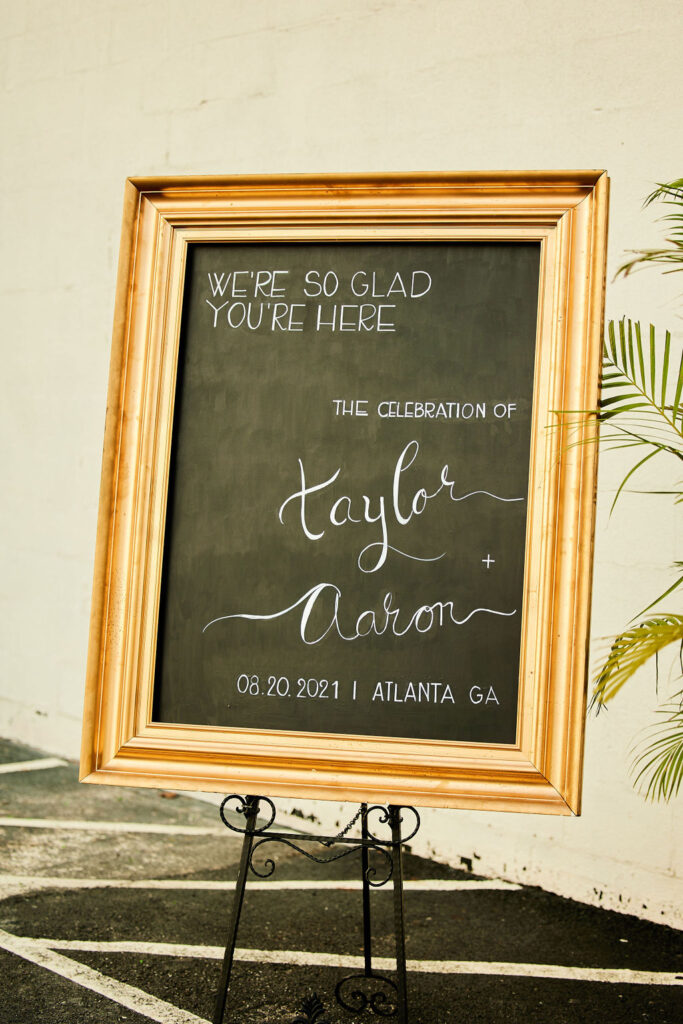 WE'RE SO GLAD
YOU'RE HERE
THE CELEBRATION OF
taylor
+
Aaron
08.20.2021 | ATLANTA GA